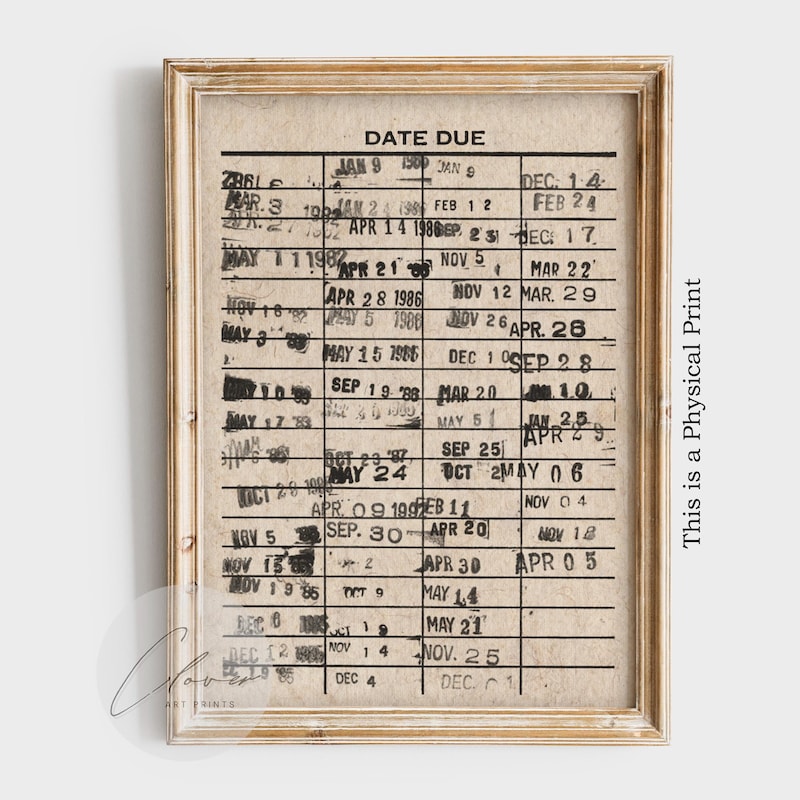 DATE DUE
MAR. 3 1982
APR. 2 1982
MAY 11 1982
NOV 16 '82
MAY 3 '83
MAY 10 '83
MAY 17 '83
OCT 29
NOV 5
NOV 15 '85
NOV 19 '85
DEC 1985
DEC 12 1985
19 '85
JAN 9 1986
JAN 21 1986
APR 14 1986
APR 21 '86
APR 28 1986
MAY 5 1986
MAY 15 1986
SEP 19 '86
OCT 23 '87
MAY 24
APR. 09 1992
SEP. 30
2
OCT 9
OCT 19
NOV 14
DEC 4
JAN 9
FEB 12
SEP 23
NOV 5
NOV 12
NOV 26
DEC 10
MAR 20
MAY 5
SEP 25
OCT 2
FEB 11
APR 20
APR 30
MAY 14
MAY 21
NOV. 25
DEC. 1
DEC. 14
FEB 24
DEC. 17
MAR 22
MAR. 29
APR. 26
SEP 28
JAN 10
JAN 25
APR 29
MAY 06
NOV 04
NOV 18
APR 05
This is a Physical Print
Clover
ART PRINTS